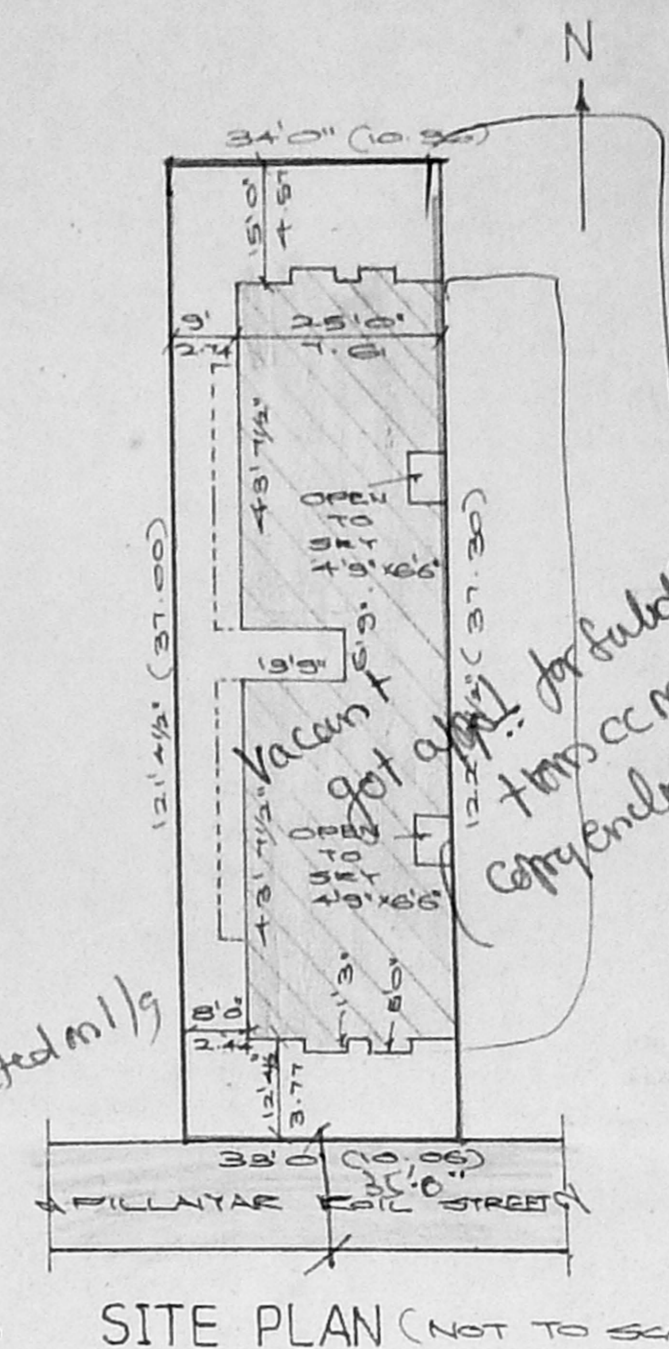 N
34'0" (10.36)
15'0"
4.57
9'
2.74
25'0"
7.61
43'7½"
OPEN
TO
SKY
4'9"x6'6"
121'4½" (37.00)
122'4½" (37.30)
9'9"
6'9"
Vacant
got
for
copy
43'7½"
OPEN
TO
SKY
4'9"x6'6"
1'3"
5'0"
8'0"
2.44
12'4½"
3.77
33'0" (10.06)
35'0"
PILLAIYAR KOIL STREET
SITE PLAN (NOT TO